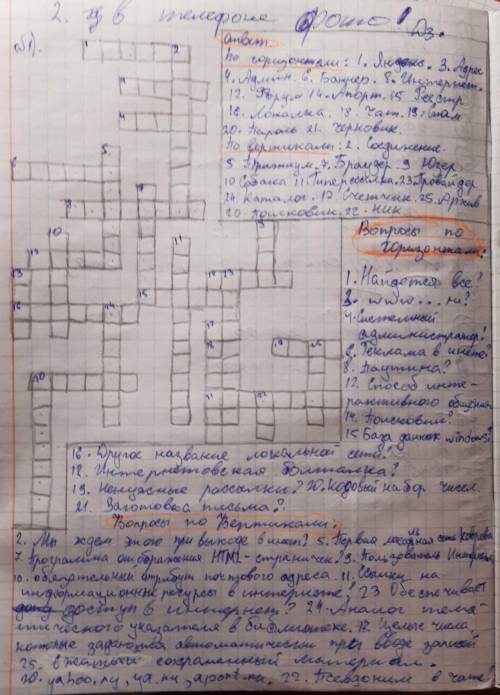 2. в телефоне фото!
Дз.
Ответ.
По горизонтали: 1. Яндекс. 3. Адрес
4. Админ. 6. Баннер. 8. Интернет.
12. Форум 14. Апорт. 15. Реестр
16. Локалка. 18. Чат. 19. Спам
20. Пароль 21. Черновик.
По вертикали: 2. Соединение.
5 7. Браузер. 9 Юзер
10 Собака 11. Гиперссылка. 23. Провайдер
24 Каталог. 17. Счетчик. 25. Архив
20. Поисковик. 22. Ник
Вопросы по
горизонтали:
1. Найдется все?
3. www... ru?
4. Системный
администратор?
6. Реклама в инете?
8. Паутина?
12. Способ инте-
рактивного общения
14. Поисковик?
15 База данных windows?
16. Другое название локальной сети?
18. Интернетовская болталка?
19. рассылки? 20. Кодовый набор чисел.
21. Заготовка письма?
Вопросы по Вертикали:
2. Мы ждем этого при выходе в инет? 5. Первая сеть
7 Программа отображения HTML-страничек? 9. Пользователь Интернета
10. обязательный атрибут почтового адреса. 11. Ссылки на
информационные ресурсы в интернете? 23 Обеспечивает
доступ в интернет? 24. Аналог тема-
тического указателя в библиотеке. 17. Целые числа,
которые задаются автоматически при вводе записей
25. в сжатый сохраненный материал.
20. yahoo.ru, ya.ru, aport.ru. 22. Псевдоним в чате